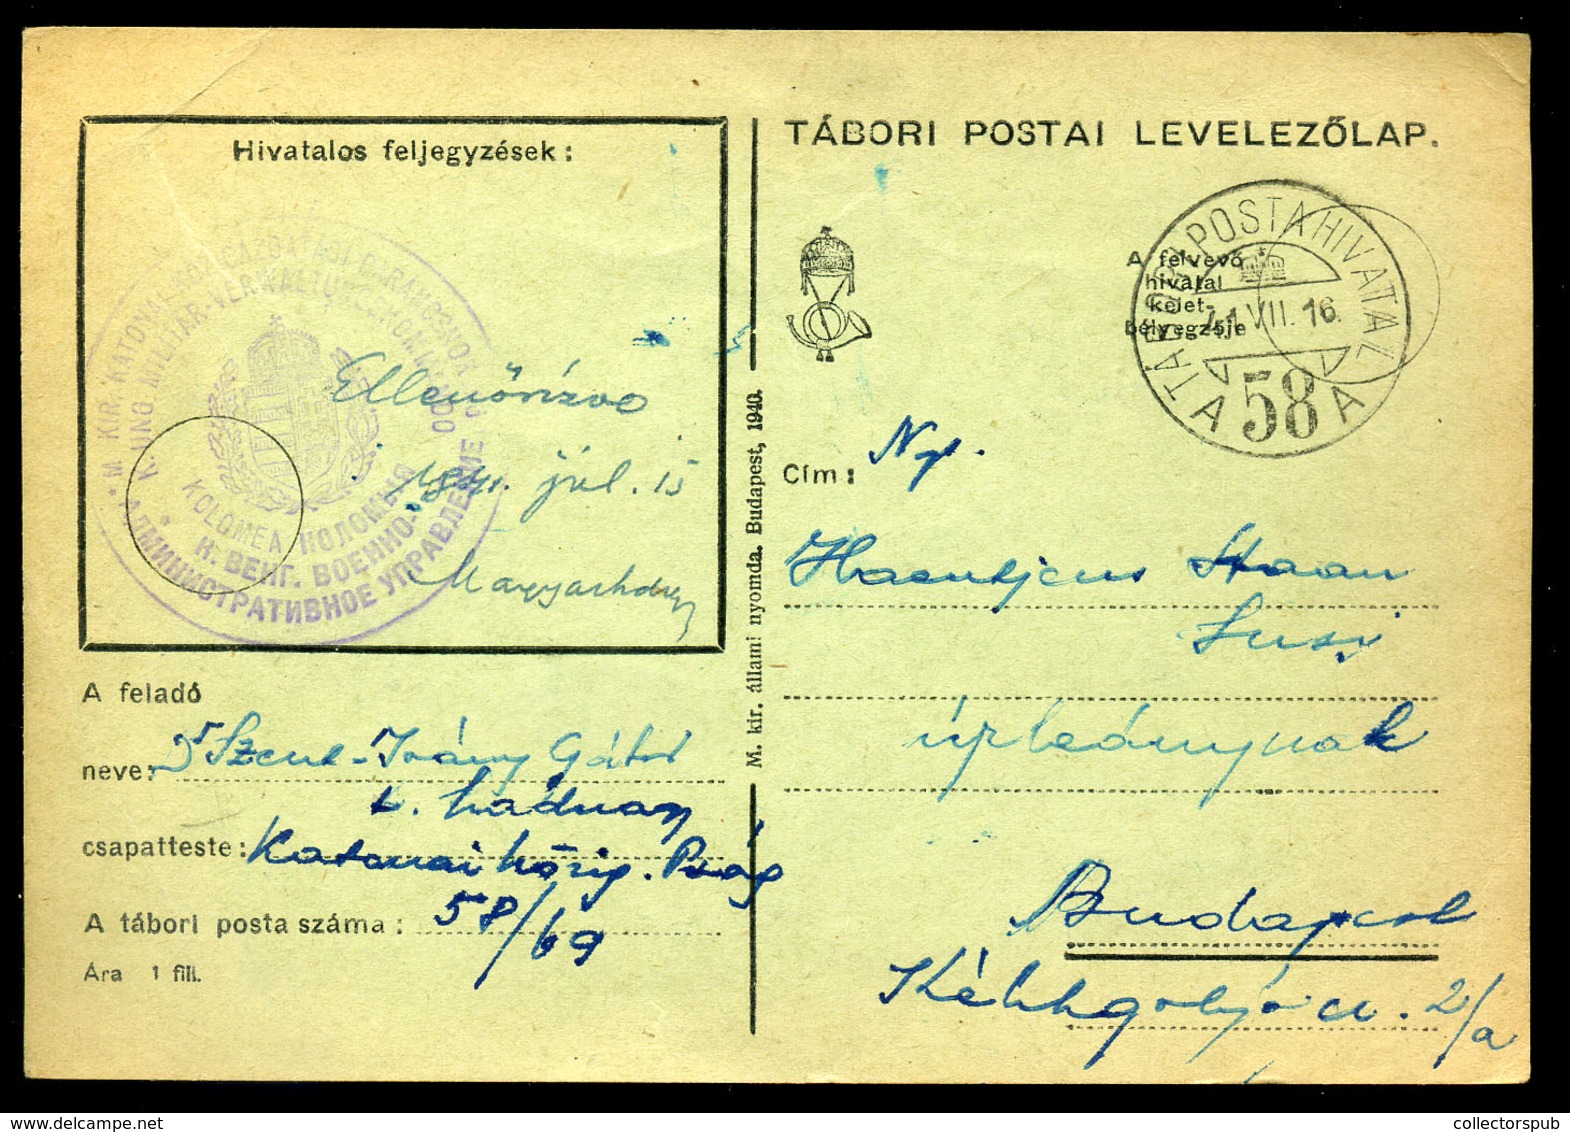 Hivatalos feljegyzések:
M. KIR. KATONAI KÖZIGAZGATÁSI PARANCSNOKSÁG
K. UNG. MILITÄR-VERWALTUNGSKOMMANDO
KOLOMEA КОЛОМЫЯ
К. ВЕНГ. ВОЕННО-
АДМИНИСТРАТИВНОЕ УПРАВЛЕНИЕ
Ellenőrizve
1941. júl. 15
TÁBORI POSTAI LEVELEZŐLAP.
A felvevő
hivatal
kelet-
bélyegzője
TÁBORI POSTAHIVATAL
41 VII. 16.
A 58 A
Cím: Ng.
Susi
úrleánynak
Budapest
Kékgolyó u. 2/a
M. kir. állami nyomda. Budapest, 1940.
A feladó
neve: Szent-Ivány Gábor
t. hadnagy
csapatteste: Katonai közig. Pság
A tábori posta száma: 58/69
Ára 1 fill.
collectorspub